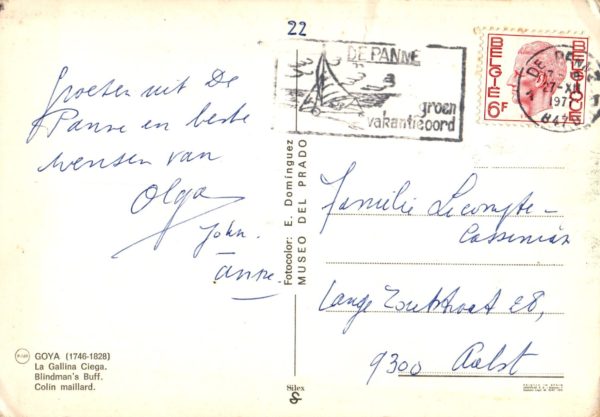 22
DE PANNE
groen
vakantieoord
BELGIE
BELGIQUE
6F
DE PANNE
27-XII
197
8470
1
Groeten uit De
Panne en beste
wensen van
Olga
John.
Anne.
Familie Lecompte-
Lange Zoutstraat 28,
9300 Aalst
Fotocolor: E. Domínguez
MUSEO DEL PRADO
GOYA (1746-1828)
La Gallina Ciega.
Blindman's Buff.
Colin maillard.
Silex
PRINTED IN SPAIN